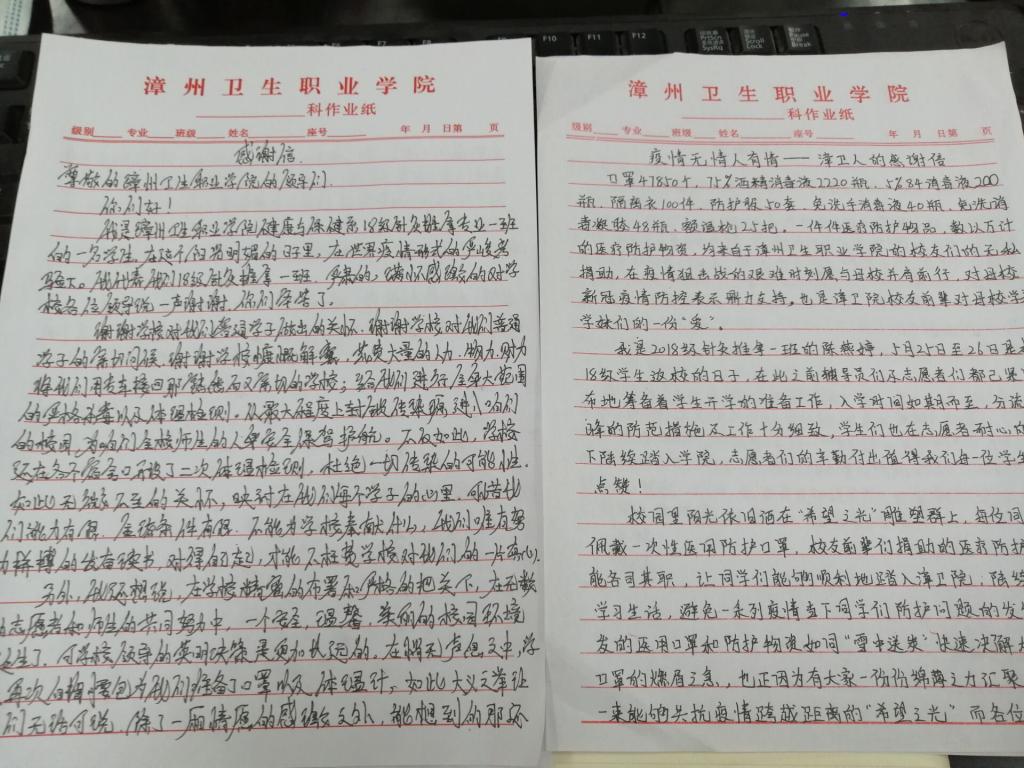 F10
F11
F12
PrtScn
SysRq
Scroll
Lock
Pause
Break
漳州卫生职业学院
科作业纸
级别 专业 班级 姓名 座号 年 月 日第 页
感谢信
尊敬的漳州卫生职业学院的领导们
你们好!
我是漳州卫生职业学院健康与保健系18级针灸推拿专业一班
的一名学生,在这个阳光明媚的日子里,在世界疫情形式的严峻考
验下。我代表我们18级针灸推拿一班,严肃的,满怀感激的对学
校各位领导说一声谢谢,你们辛苦了。
谢谢学校对我们普通学子做出的关怀,谢谢学校对我们普通
学子的亲切问候,谢谢学校慷慨解囊,花费大量的人力、物力、财力
将我们用专车接回那熟悉而又亲切的学校;给我们进行全身大范围
的严格消毒以及体温检测,从最大程度上封锁传染源进入咱们
的校园,为咱们全校师生的人身安全保驾护航。不仅如此,学校
还在各个宿舍口开设了二次体温检测,杜绝一切传染的可能性。
如此无微不至的关怀,映衬在我们每个学子的心里,可惜我
们能力有限,金钱条件有限,不能为学校奉献什么,我们唯有努
力拼搏的发奋读书,对得起自己,才能不枉费学校对我们的一片苦心。
另外,我还想说,在学校精密的布署和严格的把关下,在无数
的志愿者和师生的共同努力中,一个安全、温馨、美丽的校园环境
诞生了,可学校领导的英明决策是更加长远的,在悄无声息之中,学
再次自掏腰包为我们准备了口罩以及体温计,如此大义之举让
们无话可说,除了一厢情愿的感激之外,能想到的那还
漳州卫生职业学院
科作业纸
级别 专业 班级 姓名 座号 年 月 日第 页
疫情无情人有情——漳卫人的感谢信
口罩47850个,75%酒精消毒液2220瓶,5%84消毒液200
瓶,隔离衣100件,防护服50套,免洗手消毒液40瓶,免洗消
毒凝胶48瓶,额温枪25把。一件件医疗防护物品,数以万计
的医疗防护物资,均来自于漳州卫生职业学院的校友们的无私
捐助,在疫情狙击战的艰难时刻愿与母校并肩前行,对母校
新冠疫情防控表示鼎力支持。也是漳卫院校友前辈对母校学
学妹们的一份“爱”。
我是2018级针灸推拿一班的陈燕婷,5月25日至26日是
18级学生返校的日子,在此之前辅导员们及志愿者们都已紧
布地筹备着学生开学的准备工作,入学时间如期而至,分流
峰的防范措施及工作十分细致,学生们也在志愿者耐心的
下陆续踏入学院,志愿者们的辛勤付出值得我们每一位学生
点赞!
校园里阳光依旧洒在“希望之光”雕塑群上,每位同
佩戴一次性医用防护口罩,校友前辈们捐助的医疗防护
能各司其职,让同学们能够顺利地踏入漳卫院,陆续
学习生活,避免一系列疫情当下同学们防护问题的发生
发的医用口罩和防护物资如同“雪中送炭”快速决解
口罩的燃眉之急,也正因为有大家一份份绵薄之力汇聚
一来能够共抗疫情跨越距离的“希望之光”而各位